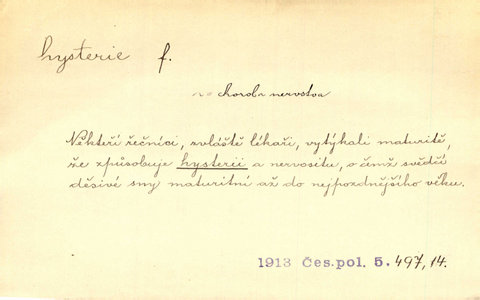 hysterie f.
choroba nervstva
Někteří řečníci, zvláště lékaři, vytýkali maturitě,
že způsobuje hysterii a nervositu, o čemž svědčí
děsivé sny maturitní až do nejpozdnějšího věku.
1913 Čes.pol. 5. 497,14.